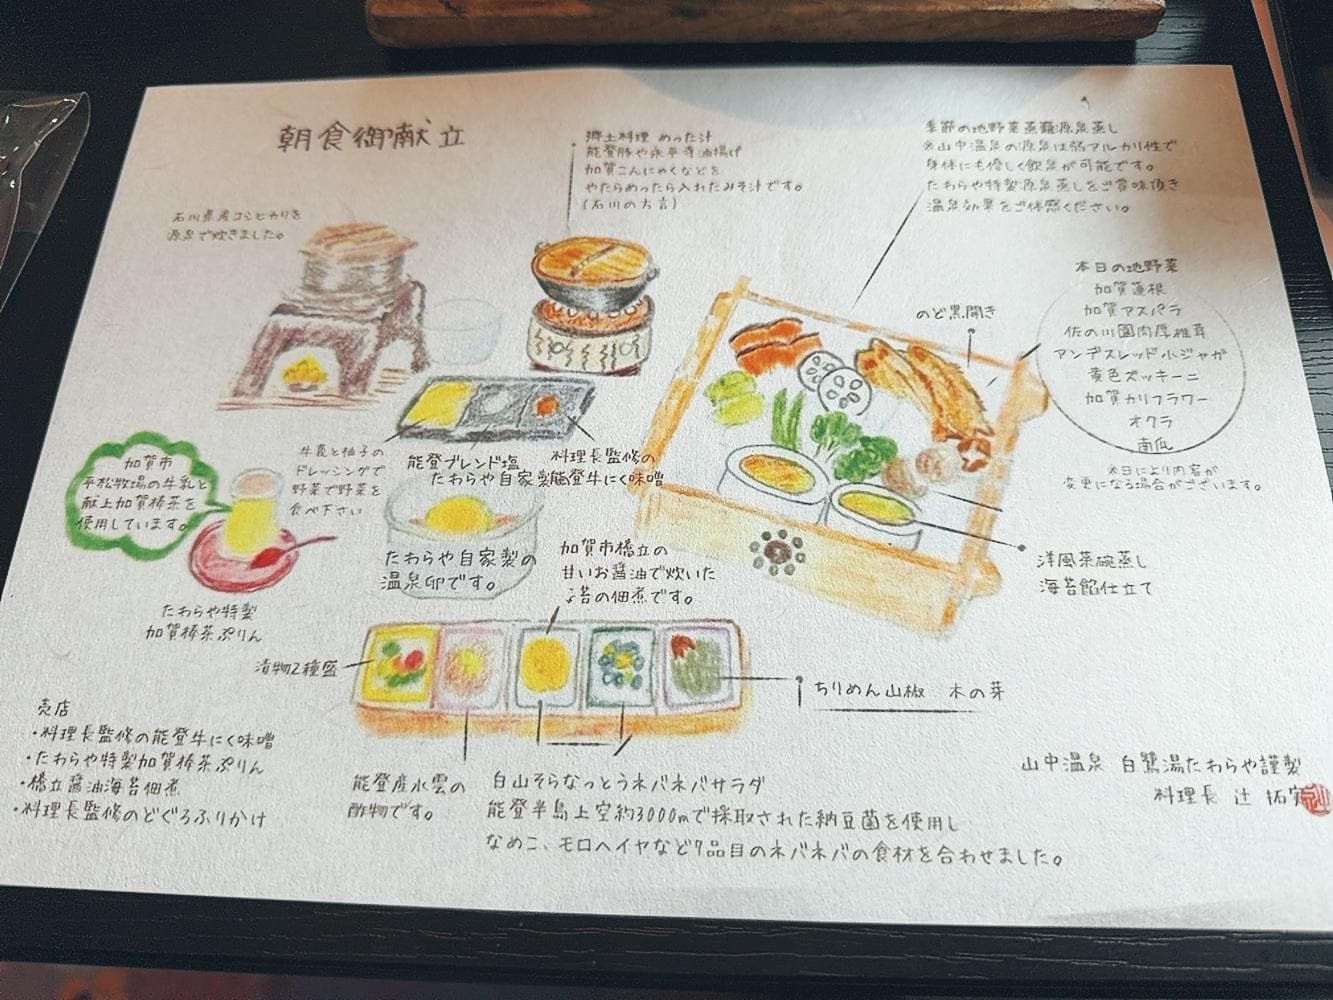 朝食御献立
石川県産コシヒカリを
源泉で炊きました。
郷土料理 めった汁
能登豚や永平寺油揚げ
加賀こんにゃくなどを
やたらめったら入れたみそ汁です。
(石川の方言)
季節の地野菜蒸籠源泉蒸し
※山中温泉の源泉は弱アルカリ性で
身体にも優しく飲泉が可能です。
たわらや特製源泉蒸しをご賞味頂き
温泉効果をご体感ください。
のど黒開き
本日の地野菜
加賀蓮根
加賀アスパラ
佐の川園肉厚椎茸
アンデスレッド小ジャガ
黄色ズッキーニ
加賀カリフラワー
オクラ
南瓜
※日により内容が
変更になる場合がございます。
加賀市
平松牧場の牛乳と
献上加賀棒茶を
使用しています。
たわらや特製
加賀棒茶ぷりん
と柚子の
ドレッシングで
野菜で野菜を
食べ下さい
能登ブレンド塩
たわらや自家製
料理長監修の
能登牛にく味噌
たわらや自家製の
温泉卵です。
加賀市橋立の
甘いお醤油で炊いた
苔の佃煮です。
洋風茶碗蒸し
海苔餡仕立て
漬物2種盛
ちりめん山椒 木の芽
能登産水雲の
酢物です。
白山そらなっとうネバネバサラダ
能登半島上空約3000mで採取された納豆菌を使用し
なめこ、モロヘイヤなど7品目のネバネバの食材を合わせました。
売店
・料理長監修の能登牛にく味噌
・たわらや特製加賀棒茶ぷりん
・橋立醤油海苔佃煮
・料理長監修のどぐろふりかけ
山中温泉 白鷺湯たわらや謹製
料理長 辻 拓